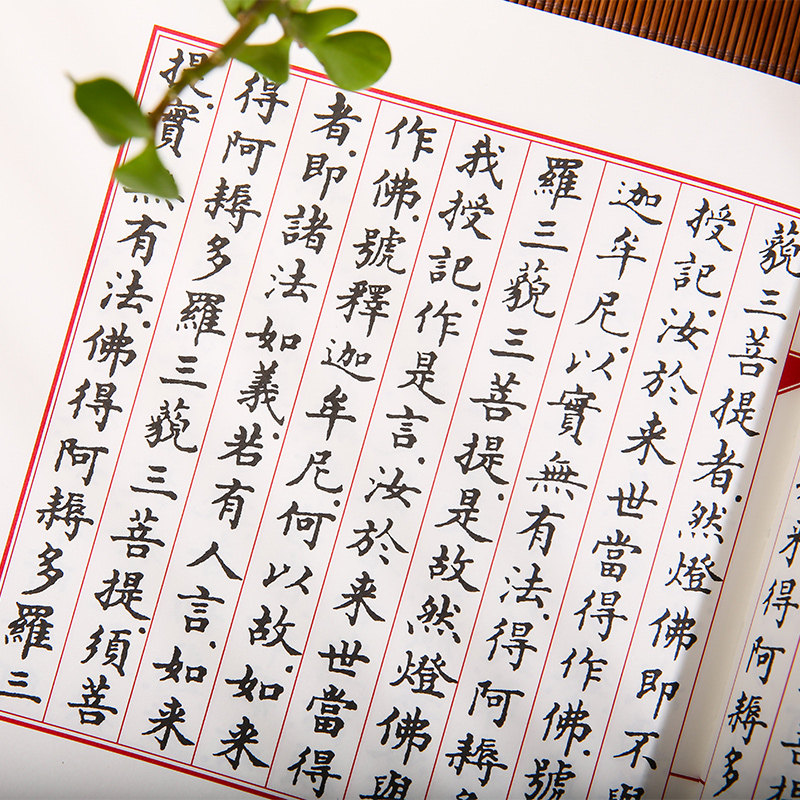 菩提
来得阿耨多
藐三菩提者.然燈佛即不與
授記.汝於来世當得作佛.號
迦牟尼.以實無有法.得阿耨多
羅三藐三菩提.是故然燈佛與
我授記.作是言.汝於来世當得
作佛.號釋迦牟尼.何以故.如来
者.即諸法如義.若有人言.如来
得阿耨多羅三藐三菩提.須菩
提.實無有法.佛得阿耨多羅三